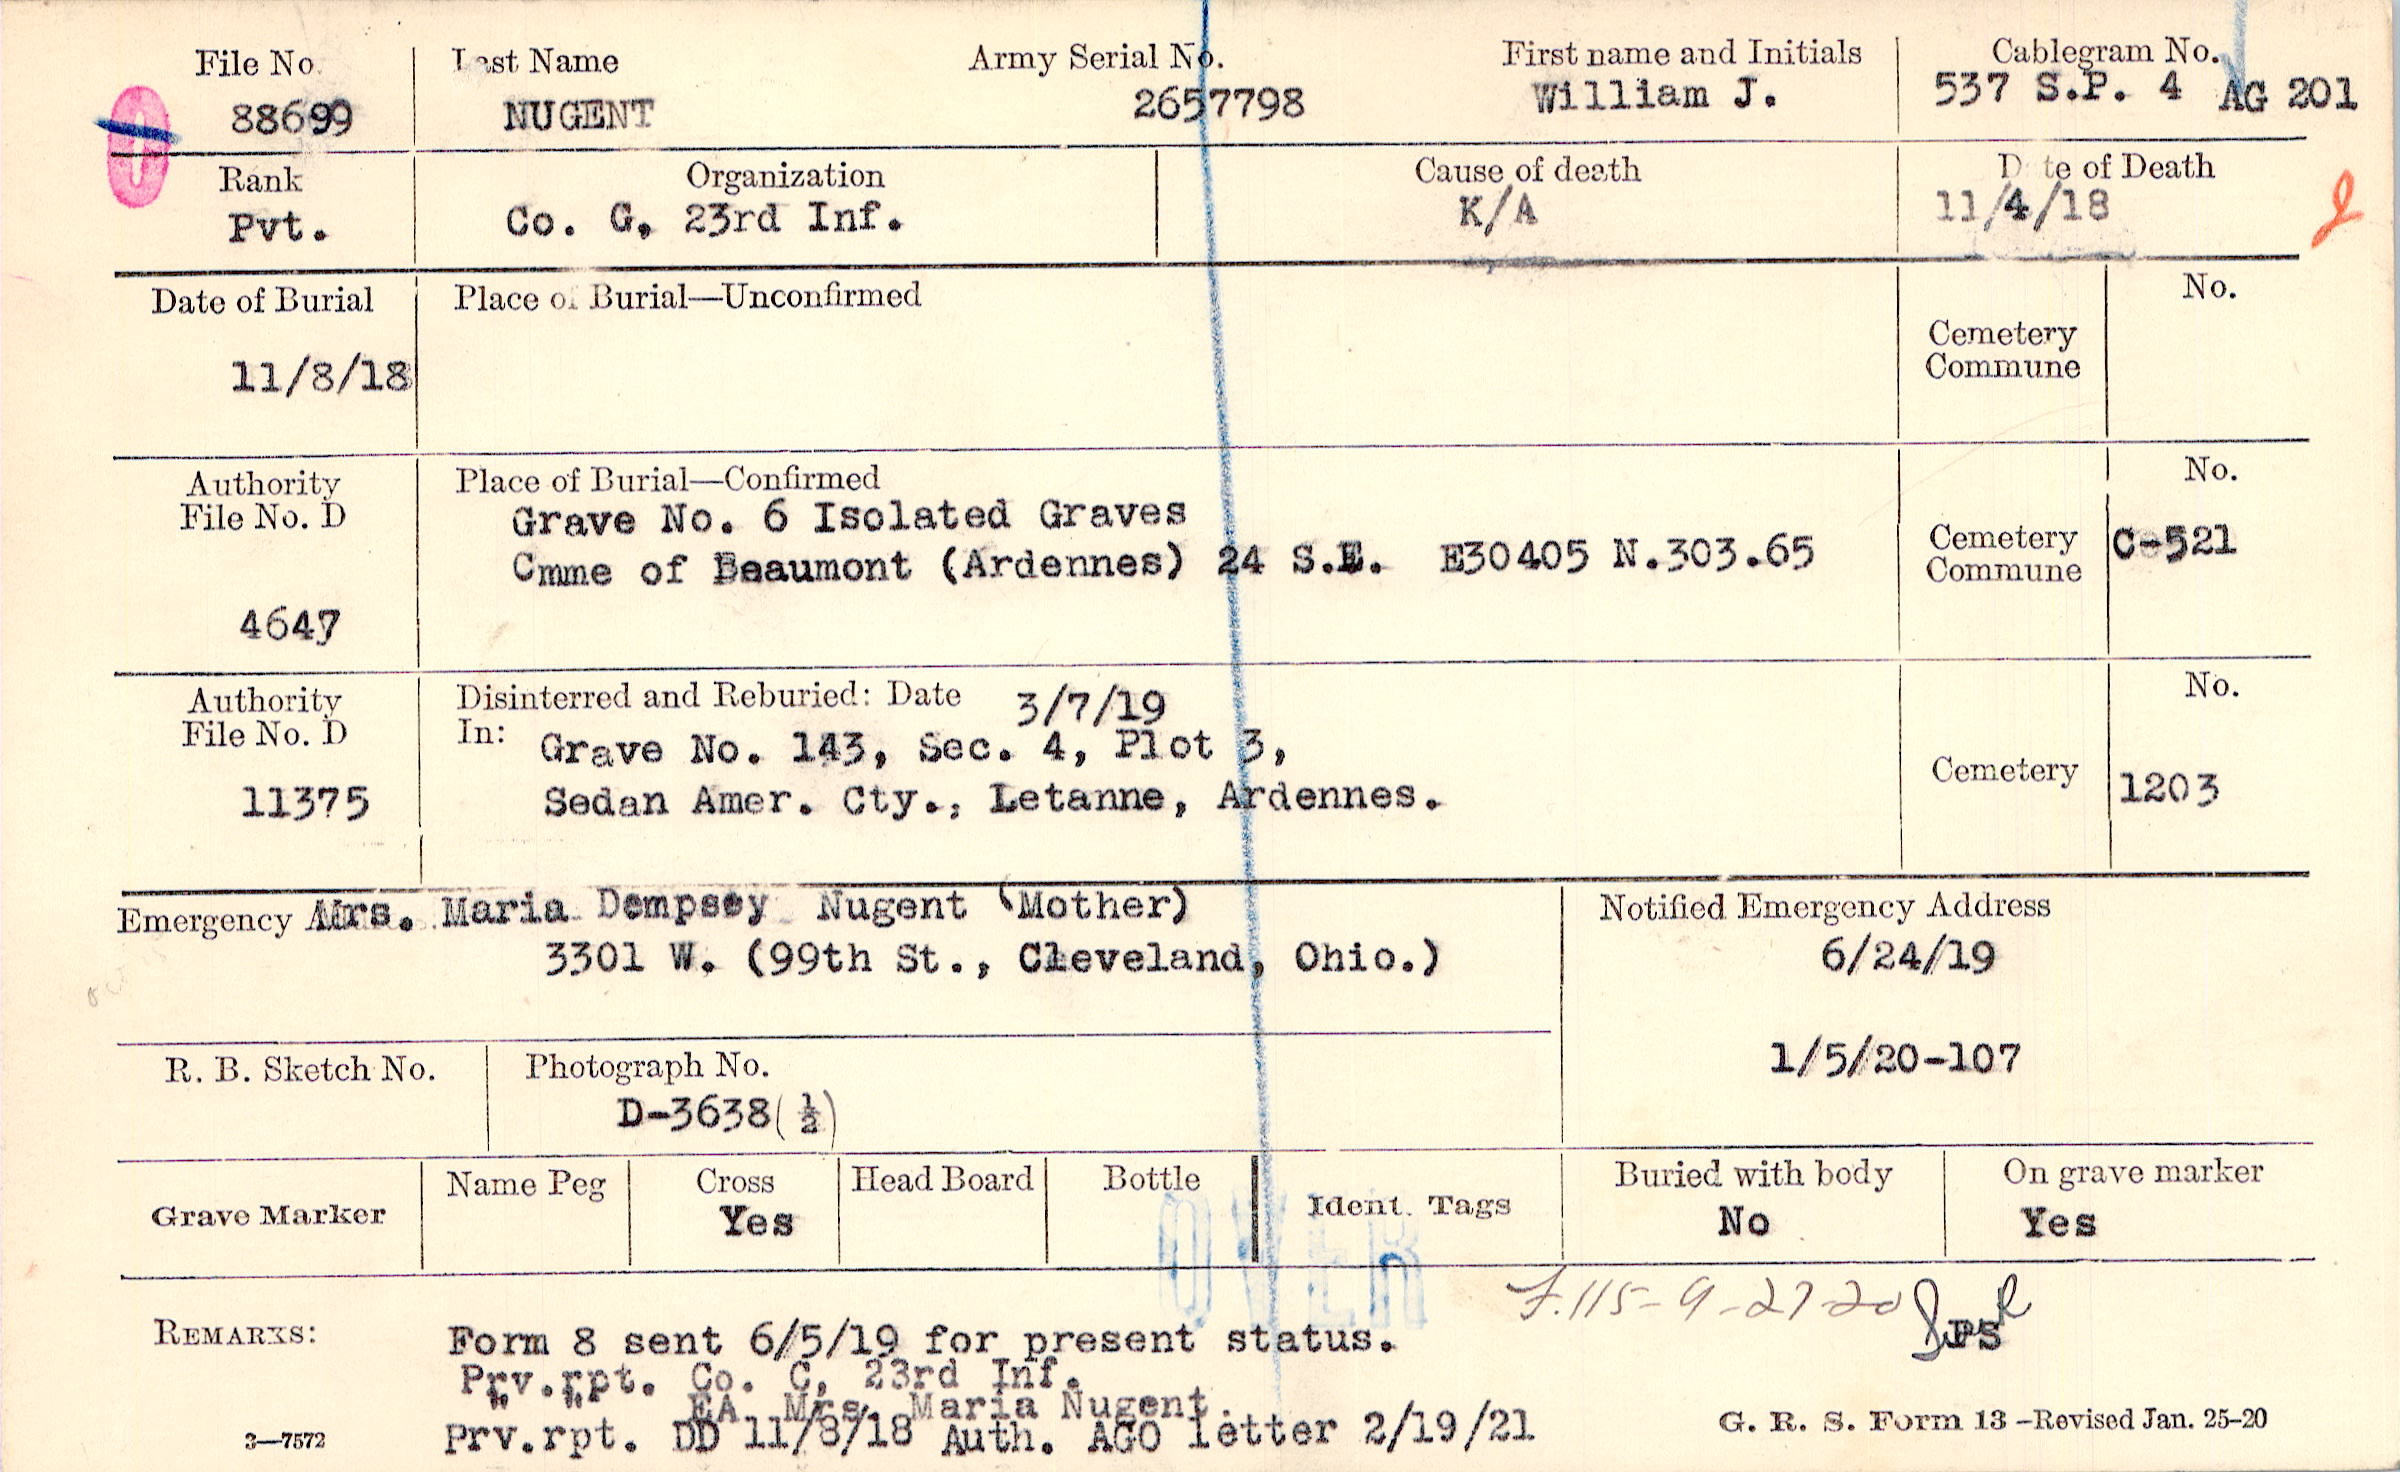 File No. Last Name Army Serial No. First name and Initials Cablegram No.
88699 NUGENT 2657798 William J. 537 S.P. 4 AG 201
Rank Organization Cause of death Date of Death
Pvt. Co. G, 23rd Inf. K/A 11/4/18
Date of Burial Place of Burial—Unconfirmed No.
11/8/18 Cemetery
Commune
Authority Place of Burial—Confirmed No.
File No. D Grave No. 6 Isolated Graves
Cmme of Beaumont (Ardennes) 24 S.E. E30405 N.303.65 Cemetery C-521
Commune
4647
Authority Disinterred and Reburied: Date 3/7/19 No.
File No. D In: Grave No. 143, Sec. 4, Plot 3,
11375 Sedan Amer. Cty., Letanne, Ardennes. Cemetery 1203
Emergency Mrs. Maria Dempsey Nugent (Mother) Notified Emergency Address
3301 W. (99th St., Cleveland, Ohio.) 6/24/19
1/5/20-107
R. B. Sketch No. Photograph No.
D-3638(½)
Grave Marker Name Peg Cross Head Board Bottle Ident. Tags Buried with body On grave marker
Yes No Yes
OVER
F.115-9-27-20
REMARKS: Form 8 sent 6/5/19 for present status. PS
Prv.rpt. Co. C, 23rd Inf.
" " EA Mrs Maria Nugent.
Prv.rpt. DD 11/8/18 Auth. AGO letter 2/19/21
3—7572 G. R. S. Form 13 -Revised Jan. 25-20